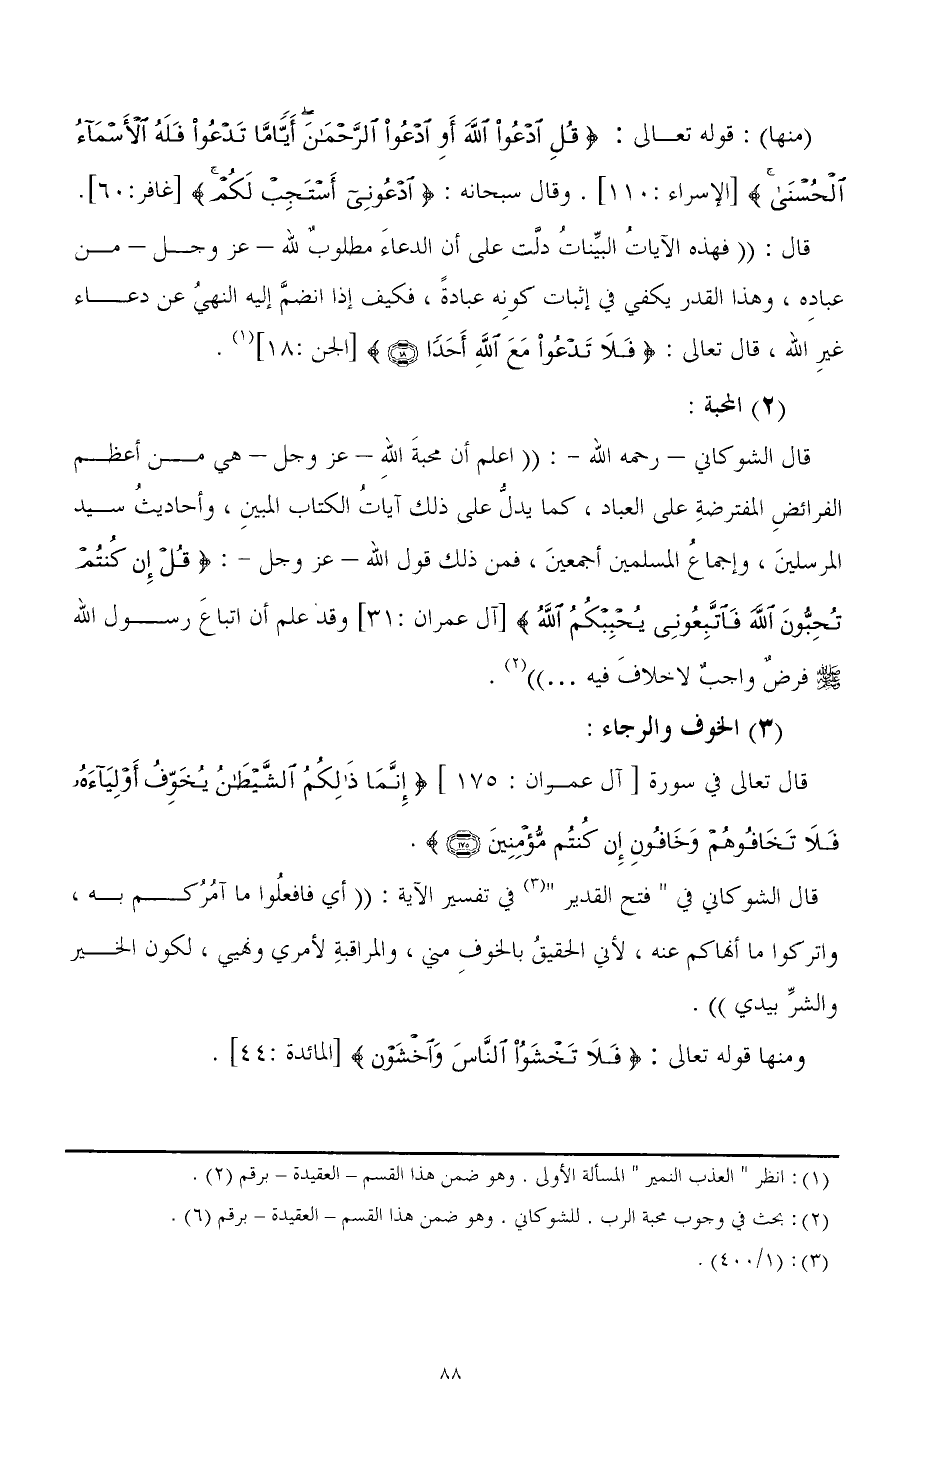 (منها) : قوله تعالى : ﴿ قُلِ ٱدْعُواْ ٱللَّهَ أَوِ ٱدْعُواْ ٱلرَّحْمَـٰنَۖ أَيًّا مَّا تَدْعُواْ فَلَهُ ٱلْأَسْمَآءُ
ٱلْحُسْنَىٰۚ ﴾ [الإسراء :١١٠] . وقال سبحانه : ﴿ ٱدْعُونِىٓ أَسْتَجِبْ لَكُمْۚ ﴾ [غافر:٦٠].
قال : (( فهذه الآياتُ البيِّناتُ دلَّت على أن الدعاءَ مطلوبٌ لله – عز وجل – من
عبادِه ، وهذا القدر يكفي في إثبات كونِه عبادةً ، فكيف إذا انضمَّ إليه النهيُ عن دعاء
غيرِ الله ، قال تعالى : ﴿ فَلَا تَدْعُواْ مَعَ ٱللَّهِ أَحَدًا ۝١٨ ﴾ [الجن :١٨](١) .
(٢) المحبة :
قال الشوكاني – رحمه الله - : (( اعلم أن محبةَ اللهِ – عز وجل – هي من أعظم
الفرائضِ المفترضةِ على العباد ، كما يدلُّ على ذلك آياتُ الكتاب المبين ، وأحاديثُ سيد
المرسلينَ ، وإجماعُ المسلمين أجمعينَ ، فمن ذلك قول الله – عز وجل - : ﴿ قُلْ إِن كُنتُمْ
تُحِبُّونَ ٱللَّهَ فَٱتَّبِعُونِى يُحْبِبْكُمُ ٱللَّهُ ﴾ [آل عمران :٣١] وقد علم أن اتباعَ رسول الله
ﷺ فرضٌ واجبٌ لاخلافَ فيه ...))(٢) .
(٣) الخوف والرجاء :
قال تعالى في سورة [ آل عمران : ١٧٥ ] ﴿ إِنَّمَا ذَٰلِكُمُ ٱلشَّيْطَـٰنُ يُخَوِّفُ أَوْلِيَآءَهُۥ
فَلَا تَخَافُوهُمْ وَخَافُونِ إِن كُنتُم مُّؤْمِنِينَ ۝١٧٥ ﴾ .
قال الشوكاني في " فتح القدير "(٣) في تفسير الآية : (( أي فافعلُوا ما آمُرُكم به ،
واتركوا ما أنهاكم عنه ، لأني الحقيقُ بالخوفِ مني ، والمراقبةِ لأمري ونهيي ، لكون الخير
والشرِّ بيدي )) .
ومنها قوله تعالى : ﴿ فَلَا تَخْشَوُاْ ٱلنَّاسَ وَٱخْشَوْنِ ﴾ [المائدة :٤٤] .
(١): انظر " العذب النمير " المسألة الأولى . وهو ضمن هذا القسم – العقيدة – برقم (٢) .
(٢): بحث في وجوب محبة الرب . للشوكاني . وهو ضمن هذا القسم – العقيدة – برقم (٦) .
(٣): (٤٠٠/١) .
٨٨